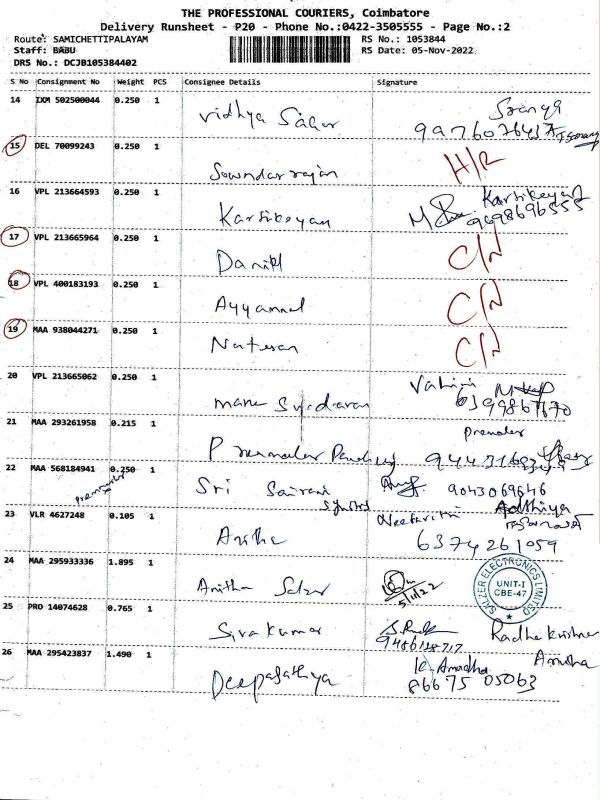 THE PROFESSIONAL COURIERS, Coimbatore
Delivery Runsheet - P20 - Phone No.:0422-3505555 - Page No.:2
Route: SAMICHETTIPALAYAM RS No.: 1053844
Staff: BABU RS Date: 05-Nov-2022
DRS No.: DCJB105384402
S No Consignment No Weight PCS Consignee Details Signature
14 IXM 502500044 0.250 1 Vidhya Sagar
15 DEL 70099243 0.250 1 Sowndar rajan H/R
16 VPL 213664593 0.250 1 Karthikeyan Karthikeyan
9698696555
17 VPL 213665964 0.250 1 Daniel C/N
18 VPL 400183193 0.250 1 Ayyammal C/N
19 MAA 938044271 0.250 1 Natesan C/N
20 VPL 213665062 0.250 1
21 MAA 293261958 0.215 1
22 MAA 568184941 0.250 1 Sri Sairam 9043069646
23 VLR 4627248 0.105 1 Anitha
6374261059
24 MAA 295933336 1.895 1 Anitha 5/11/22
SALZER ELECTRONICS LIMITED
UNIT-I
CBE-47
25 PRO 14074628 0.765 1 Sivakumar Radha krishnan
26 MAA 295423837 1.490 1 Deepasathya K. Anusha Anusha
86675 05063